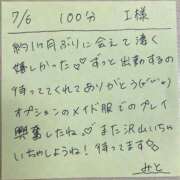 7/6 100分 I様
約1ヶ月ぶりに会えて凄く
嬉しかった♡ずっと出勤するの
待っててくれてありがとう(>᎑<)♡
オプションのメイド服でのプレイ
興奮したね♡また沢山いちゃ
いちゃしようね!待ってます
みと